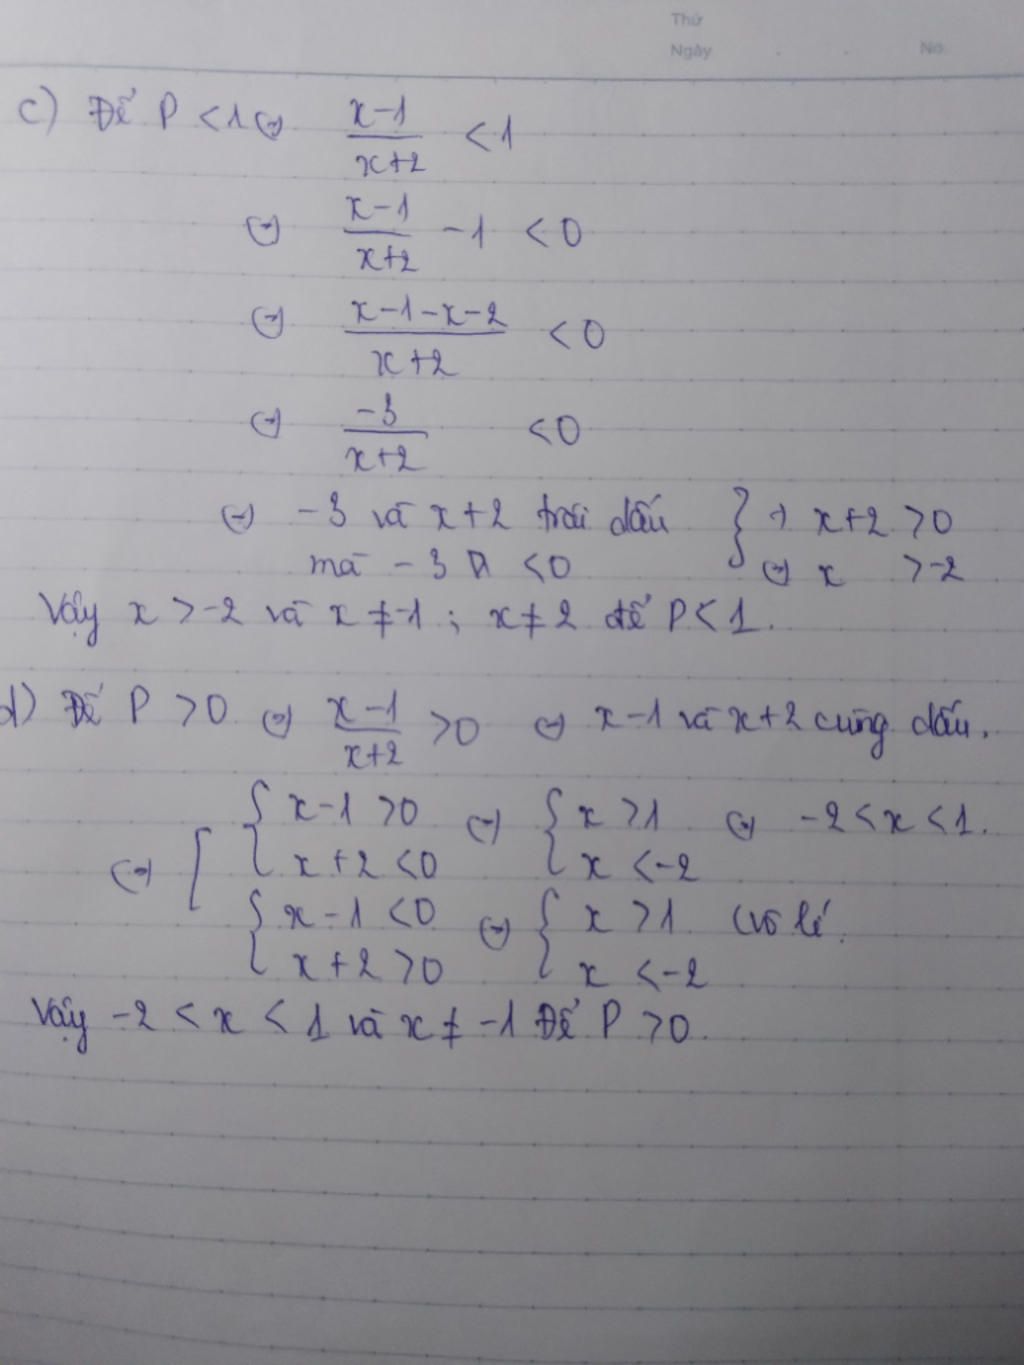 Thứ
Ngày . . No.
c) Để P < 1 ⇔ x-1/x+2 < 1
⇔ x-1/x+2 - 1 < 0
⇔ x-1-x-2/x+2 < 0
⇔ -3/x+2 < 0
⇔ -3 và x+2 trái dấu } ⇒ x+2 > 0
mà -3 < 0 ⇔ x > -2
Vậy x > -2 và x ≠ -1 ; x ≠ 2 để P < 1.
d) Để P > 0 ⇔ x-1/x+2 > 0 ⇔ x-1 và x+2 cùng dấu.
⇔ [ { x-1 > 0 ⇔ { x > 1 ⇔ -2 < x < 1.
x+2 < 0 x < -2
{ x-1 < 0 ⇔ { x > 1 (vô lí.
x+2 > 0 x < -2
Vậy -2 < x < 1 và x ≠ -1 Để P > 0.